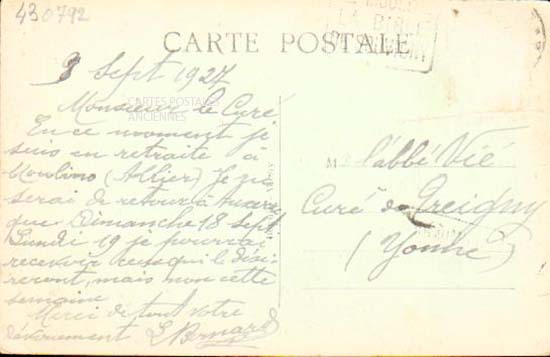 430792
CARTE POSTALE
9 Sept 1927
Monsieur le Curé
En ce moment je
suis en retraite à
Moulins (Allier) Je ne
serai de retour à Auxerre
que Dimanche 18 sept
Lundi 19 je pourrai
recevoir ceux qui le dési-
reront, mais non cette
semaine
Merci de tout votre
dévouement L Bernard
CARTES POSTALES
ANCIENNES
M l'abbé Vié
Curé de Treigny
(Yonne)